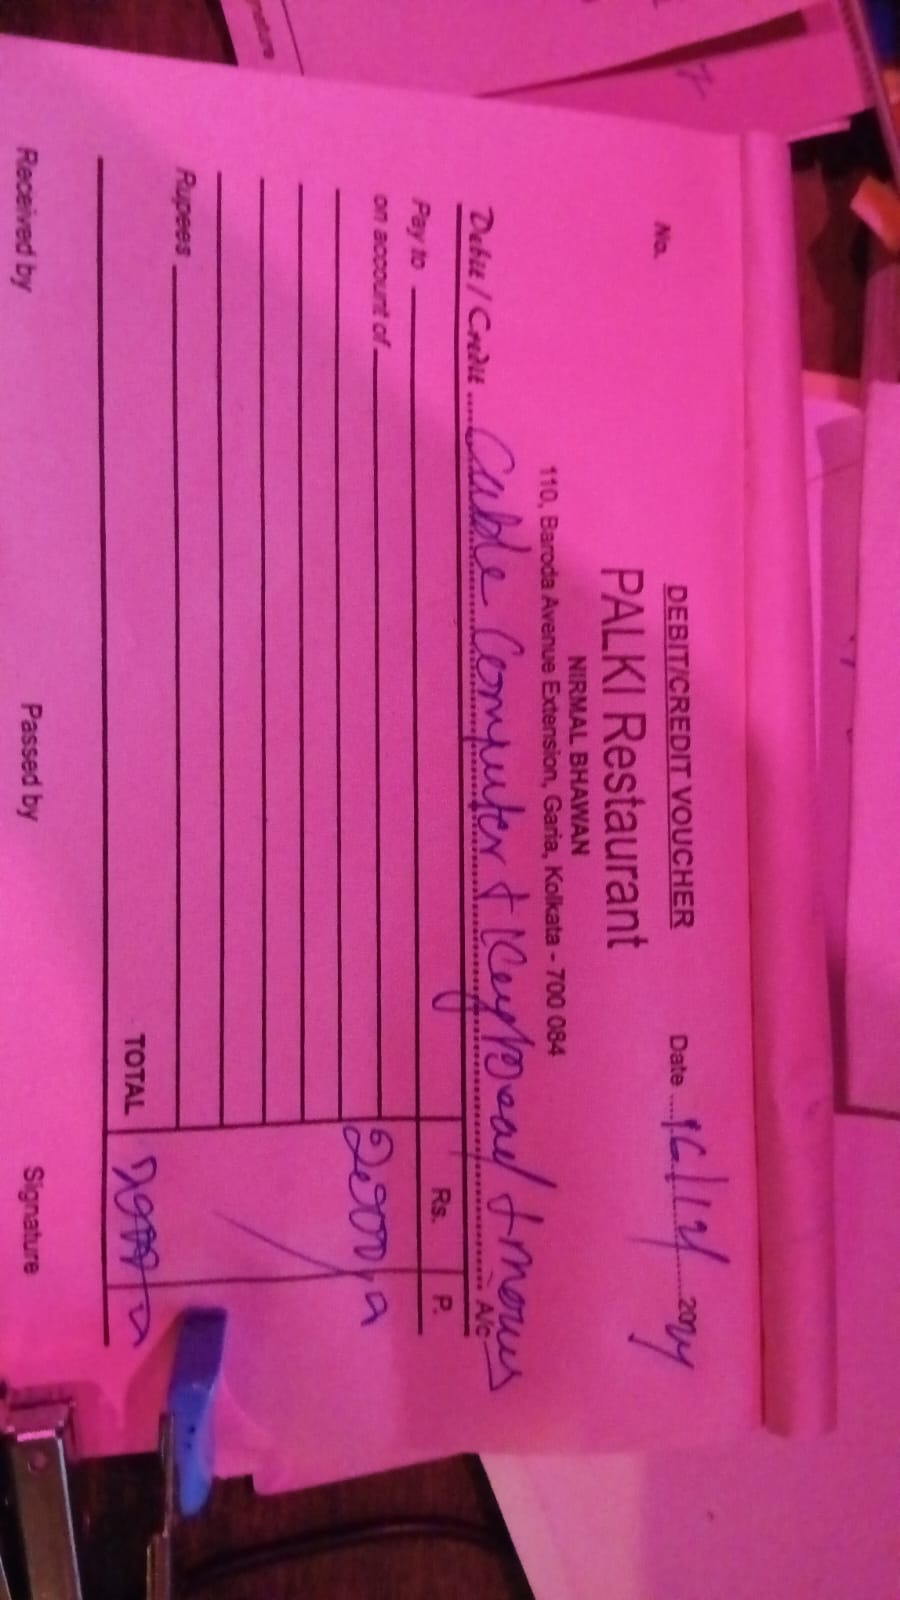 DEBIT/CREDIT VOUCHER
No.
Date
PALKI Restaurant
NIRMAL BHAWAN
110, Baroda Avenue Extension, Garia, Kolkata - 700 084
Debit / Credit Cable Computer + Keyboard + mous A/c
Rs. P.
Pay to
on account of
Rupees
TOTAL
Received by Passed by Signature